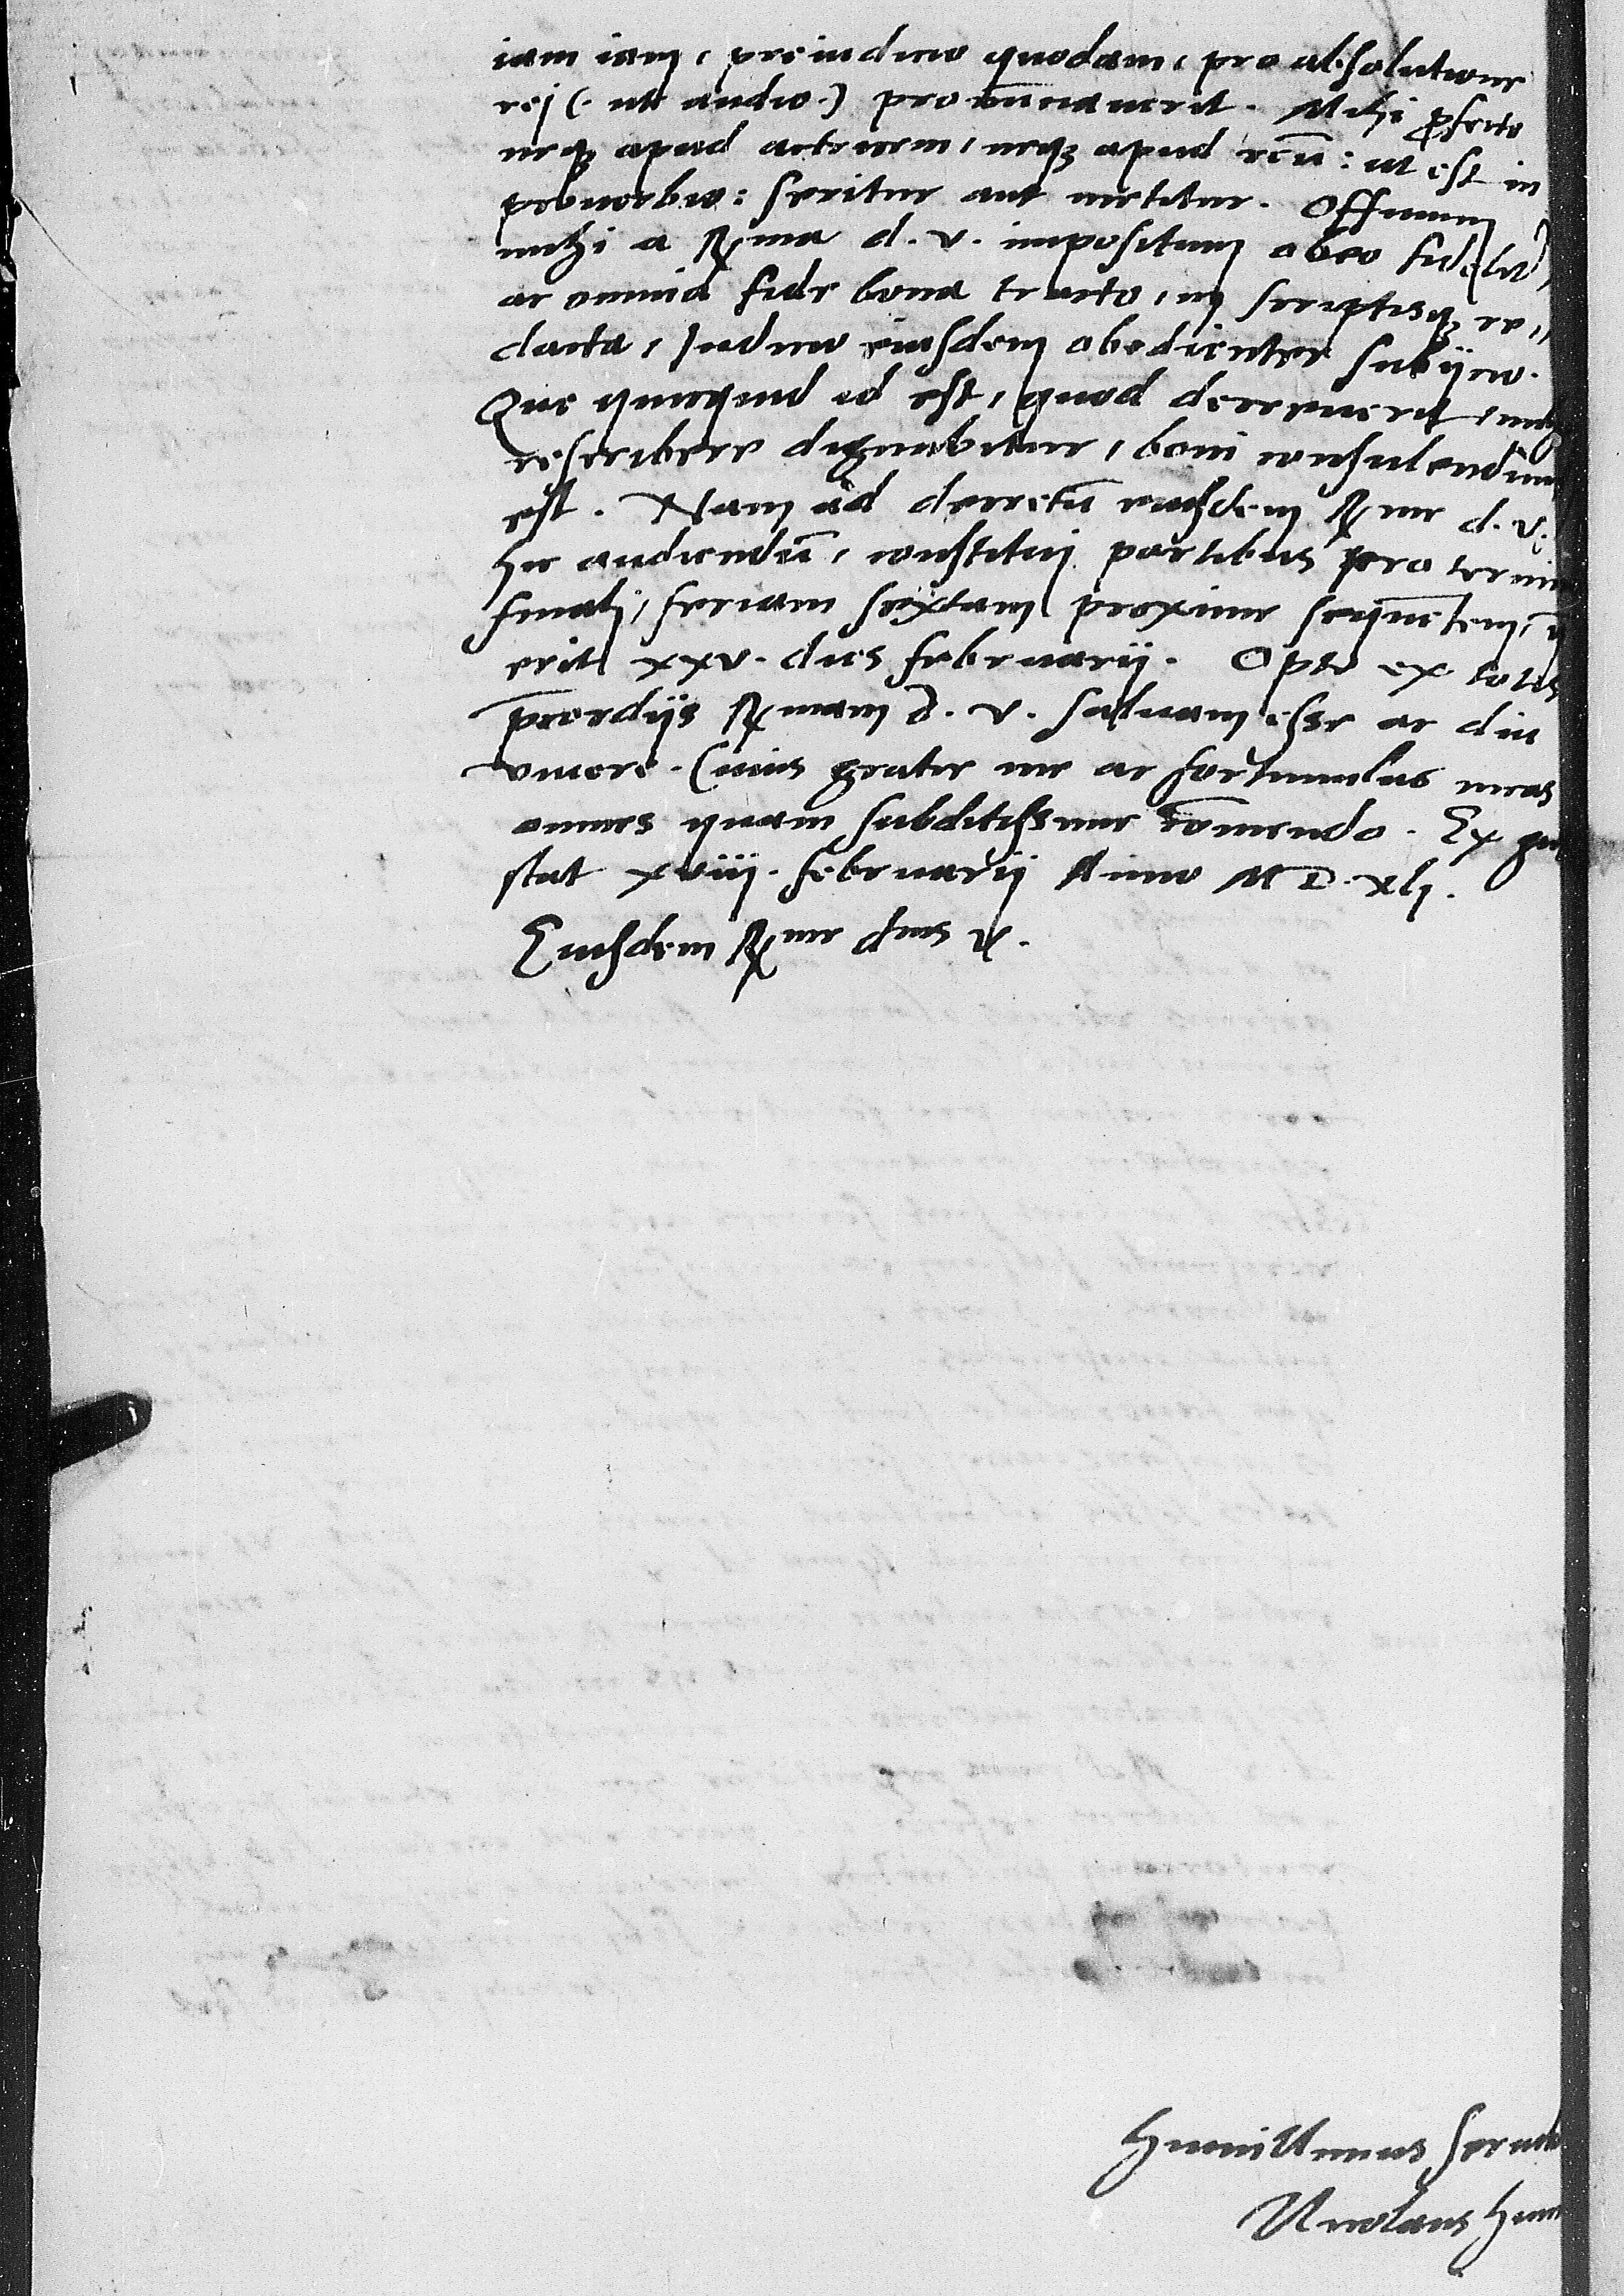 iam iam, preiudicio quodam, pro absolutione
rei (. ut audio.) pronunciauerit. Mihi ꝓfecto
neqꝫ apud actorem, neqꝫ apud reū: ut est in
prouerbio: seritur aut metitur. Officium
mihi a Rma d. v. impositum obeo fidelit
ac omnia fide bona tracto, in scriptisqꝫ re„
dacta, Iudicio eiusdem obedienter subijcio.
Que quicquid id est, quod decreuerit,
rescribere dignabitur, boni consulendum
est. Nam ad decretū eiusdem Rme d. v.
hic audiendū, constitui partibus pro
finali, feriam sextam proxime sequētem,
erit xxv. dies februarij. Opto ex totis
p̄cordijs Rmam d. v. saluam esse ac diu
viuere. Cuius gratie me ac fortunulas meas
omnes quam subditissime com̄endo. Ex
stat xviij. februarij Anno MD.xlj.
Eiusdem Rme dnis v.
Humillimus
Nicolaus